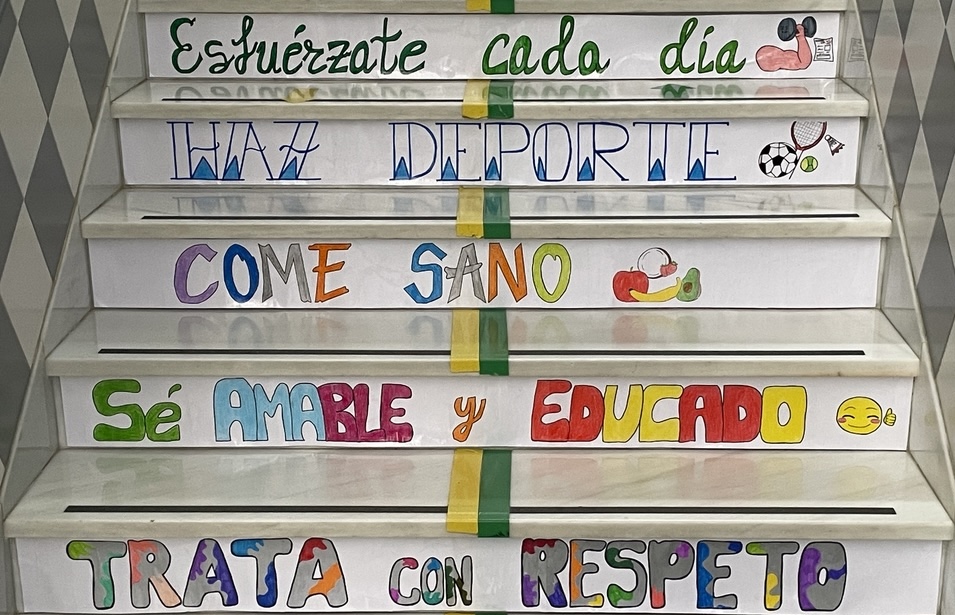 Esfuérzate cada día
HAZ DEPORTE
COME SANO
Sé AMABLE y EDUCADO
TRATA CON RESPETO